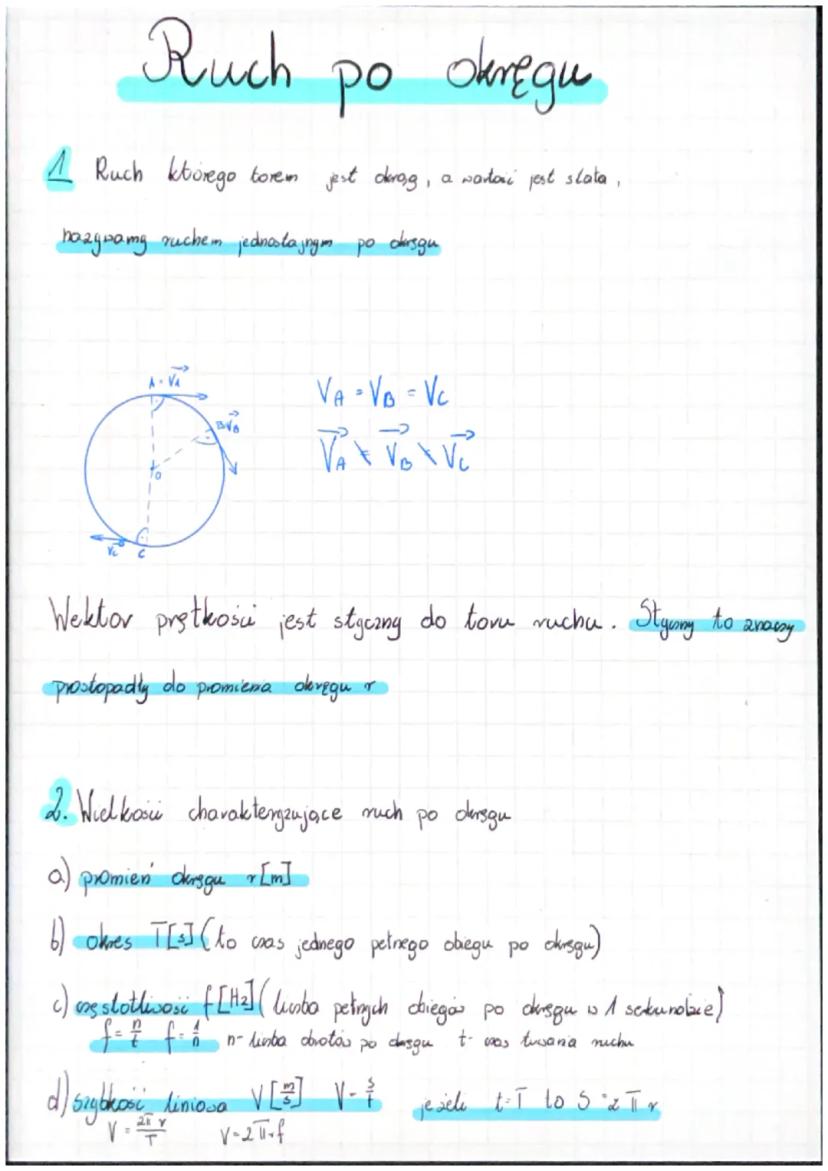 Ruch po okręgu
1 Ruch którego torem jest okrąg, a wartość jest stała,
nazywamy ruchem jednostajnym po okręgu
A = \vec{V_A}
B \vec{V_B}
O
\vec{V_C} C
V_A = V_B = V_C
\vec{V_A} ≠ \vec{V_B} ≠ \vec{V_C}
Wektor prętkości jest styczny do toru ruchu. Styczny to znaczy
prostopadły do promienia okręgu r
2. Wielkości charakteryzujące ruch po okręgu
a) promień okręgu r [m]
b) okres T [s] (to czas jednego pełnego obiegu po okręgu)
c) częstotliwość f [Hz] (liczba pełnych obiegów po okręgu w 1 sekundzie)
f = n/t f = 1/n n - liczba obrotów po okręgu t - czas trwania ruchu
d) szybkość liniowa V [m/s] V = s/t jeżeli t = T to S = 2πr
V = 2πr/T V = 2πrf